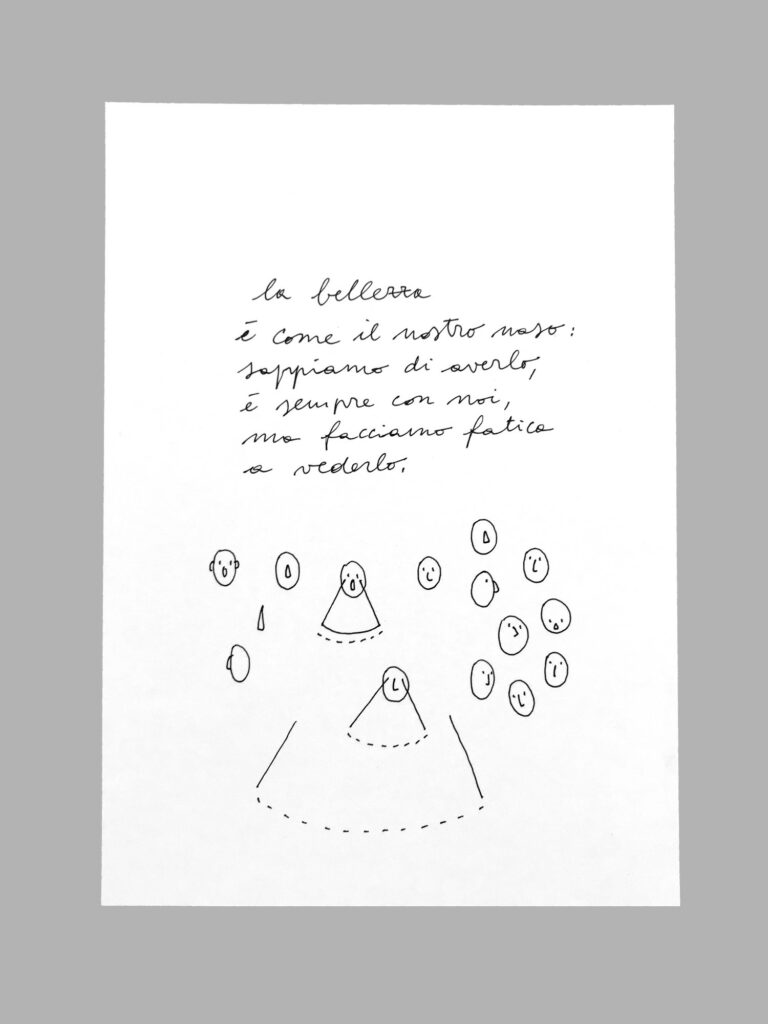 la bellezza
è come il nostro naso:
sappiamo di averlo,
è sempre con noi,
ma facciamo fatica
a vederlo.